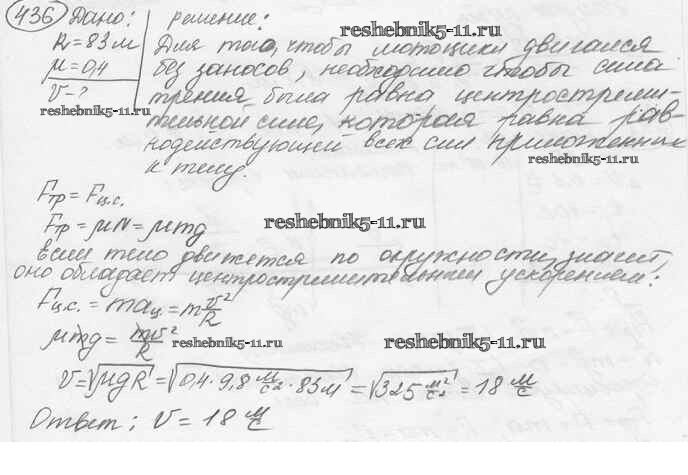 436 Дано:
R = 83 м
μ = 0,4
V - ?
решение:
Для того, чтобы мотоцикл двигался
без заносов, необходимо чтобы сила
трения была равна центростреми-
тельной силе, которая равна рав-
нодействующей всех сил приложенных
к телу.
Fтр = Fц.с.
Fтр = μN = μmg
если тело движется по окружности, значит,
оно обладает центростремительным ускорением:
Fц.с. = maц = m v²/R
μmg = mv²/R
V = √μgR = √0,4 · 9,8 м/с² · 83 м = √325 м²/с² = 18 м/с
Ответ: V = 18 м/с
reshebnik5-11.ru
reshebnik5-11.ru
reshebnik5-11.ru
reshebnik5-11.ru
reshebnik5-11.ru
reshebnik5-11.ru